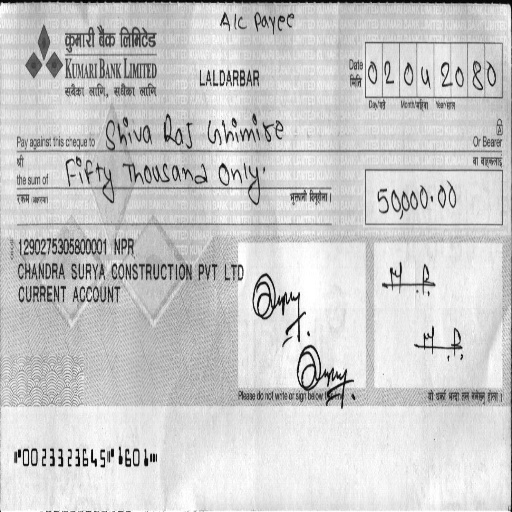 A/C Payee
कुमारी बैंक लिमिटेड
KUMARI BANK LIMITED
सबैका लागि, सधैंका लागि
LALDARBAR
Date 02042080
मिति
Day/गते Month/महिना Year/साल
Pay against this cheque to Shiva Raj Ghimire Or Bearer
श्री वा वाहकलाई
the sum of Fifty Thousand Only.
रकम (अक्षरमा) भुक्तानी दिनुहोला।
50,000.00
1290275305800001 NPR
CHANDRA SURYA CONSTRUCTION PVT LTD
CURRENT ACCOUNT
Please do not write or sign below
यो धर्का भन्दा तल नलेख्नु होला।
"0023323645" 1601"'